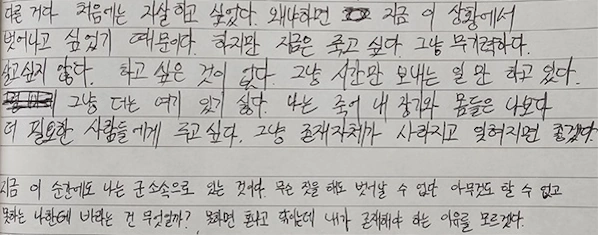 다른 거다. 처음에는 자살하고 싶었다. 왜냐하면 지금 이 상황에서
벗어나고 싶었기 때문이다. 하지만 지금은 죽고 싶다. 그냥 무기력하다.
살고싶지 않다. 하고 싶은 것이 없다. 그냥 시간만 보내는 일만 하고 있다.
그냥 더는 여기 있기 싫다. 나는 죽어 내 장기와 몸들은 나보다
더 필요한 사람들에게 주고 싶다. 그냥 존재자체가 사라지고 잊혀지면 좋겠다.
지금 이 순간에도 나는 군소속으로 있는 것이다. 무슨 짓을 해도 벗어날 수 없단 아무것도 할 수 없고
못하는 나한테 바라는 건 무엇일까? 못하면 혼나고 내가 존재해야 하는 이유를 모르겠다.